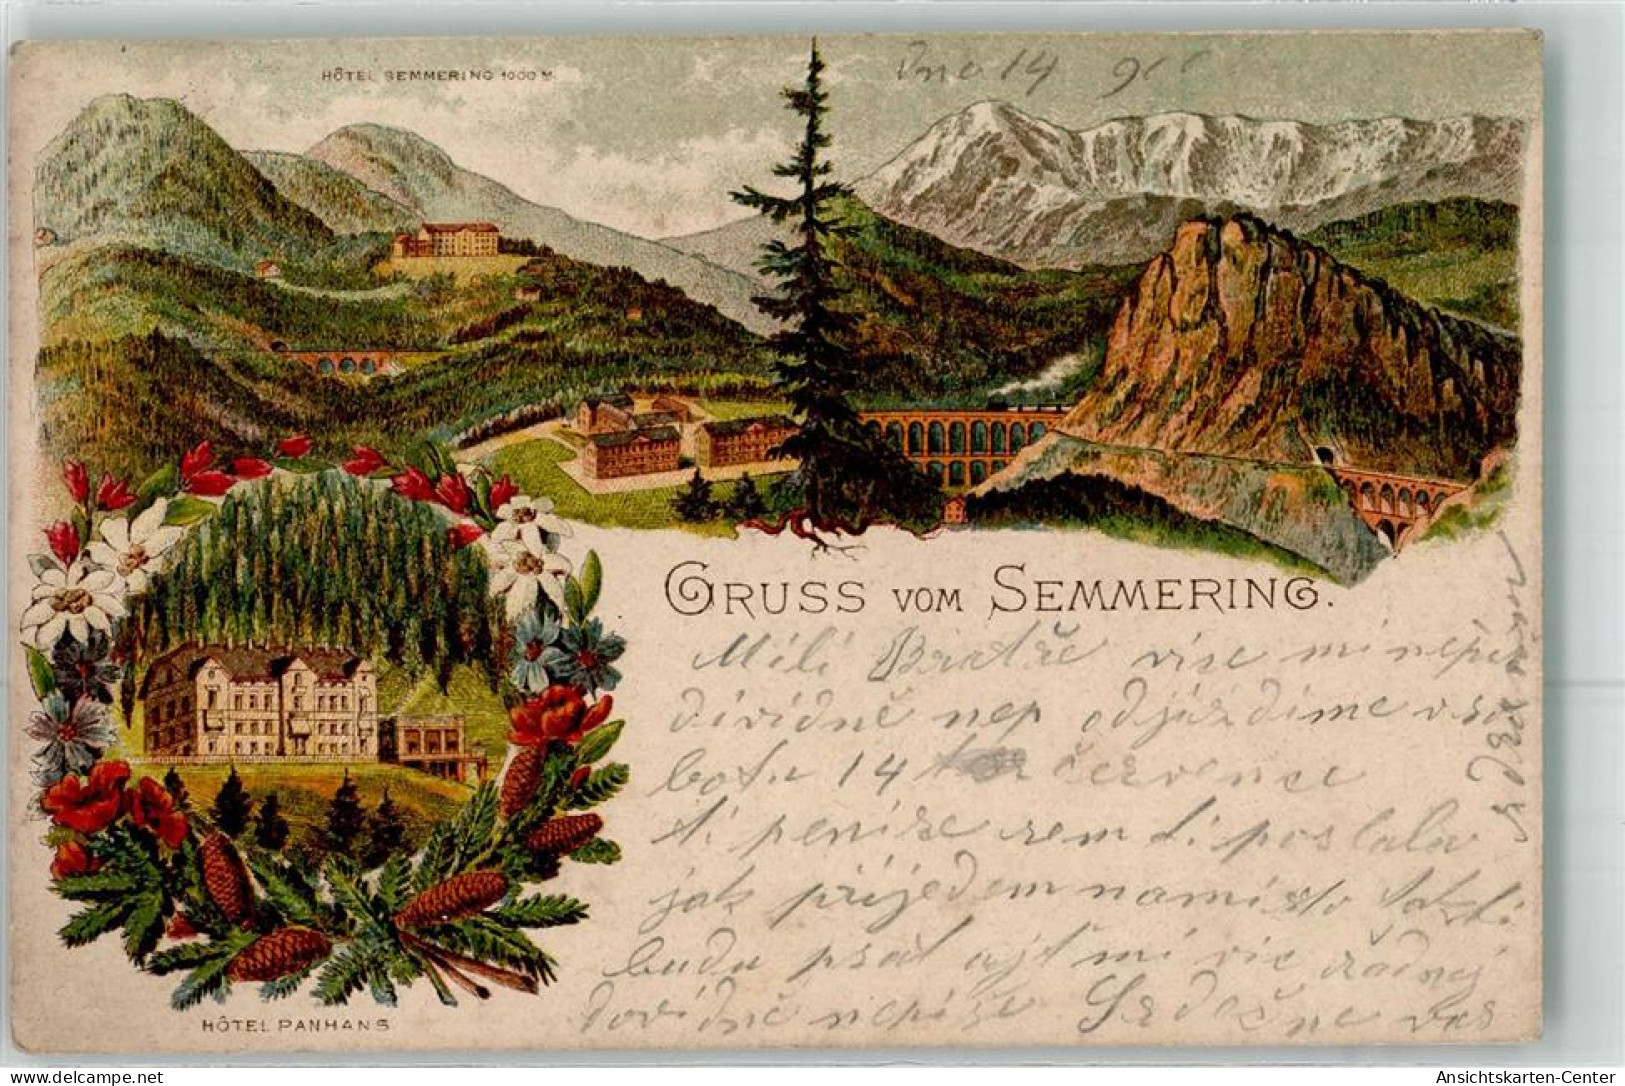 HÔTEL SEMMERING 1000 M.
dne 14
GRUSS VOM SEMMERING.
Milí Bratře více mi nepiš
dívidně nep odjíždíme v so
botu 14 července
ti peníze sem ti poslala
jak přijedem na místo
budu psát ajť mi víc žádnej
dovídně nepíše Srdečne vas
HÔTEL PANHANS
Ansichtskarten-Center